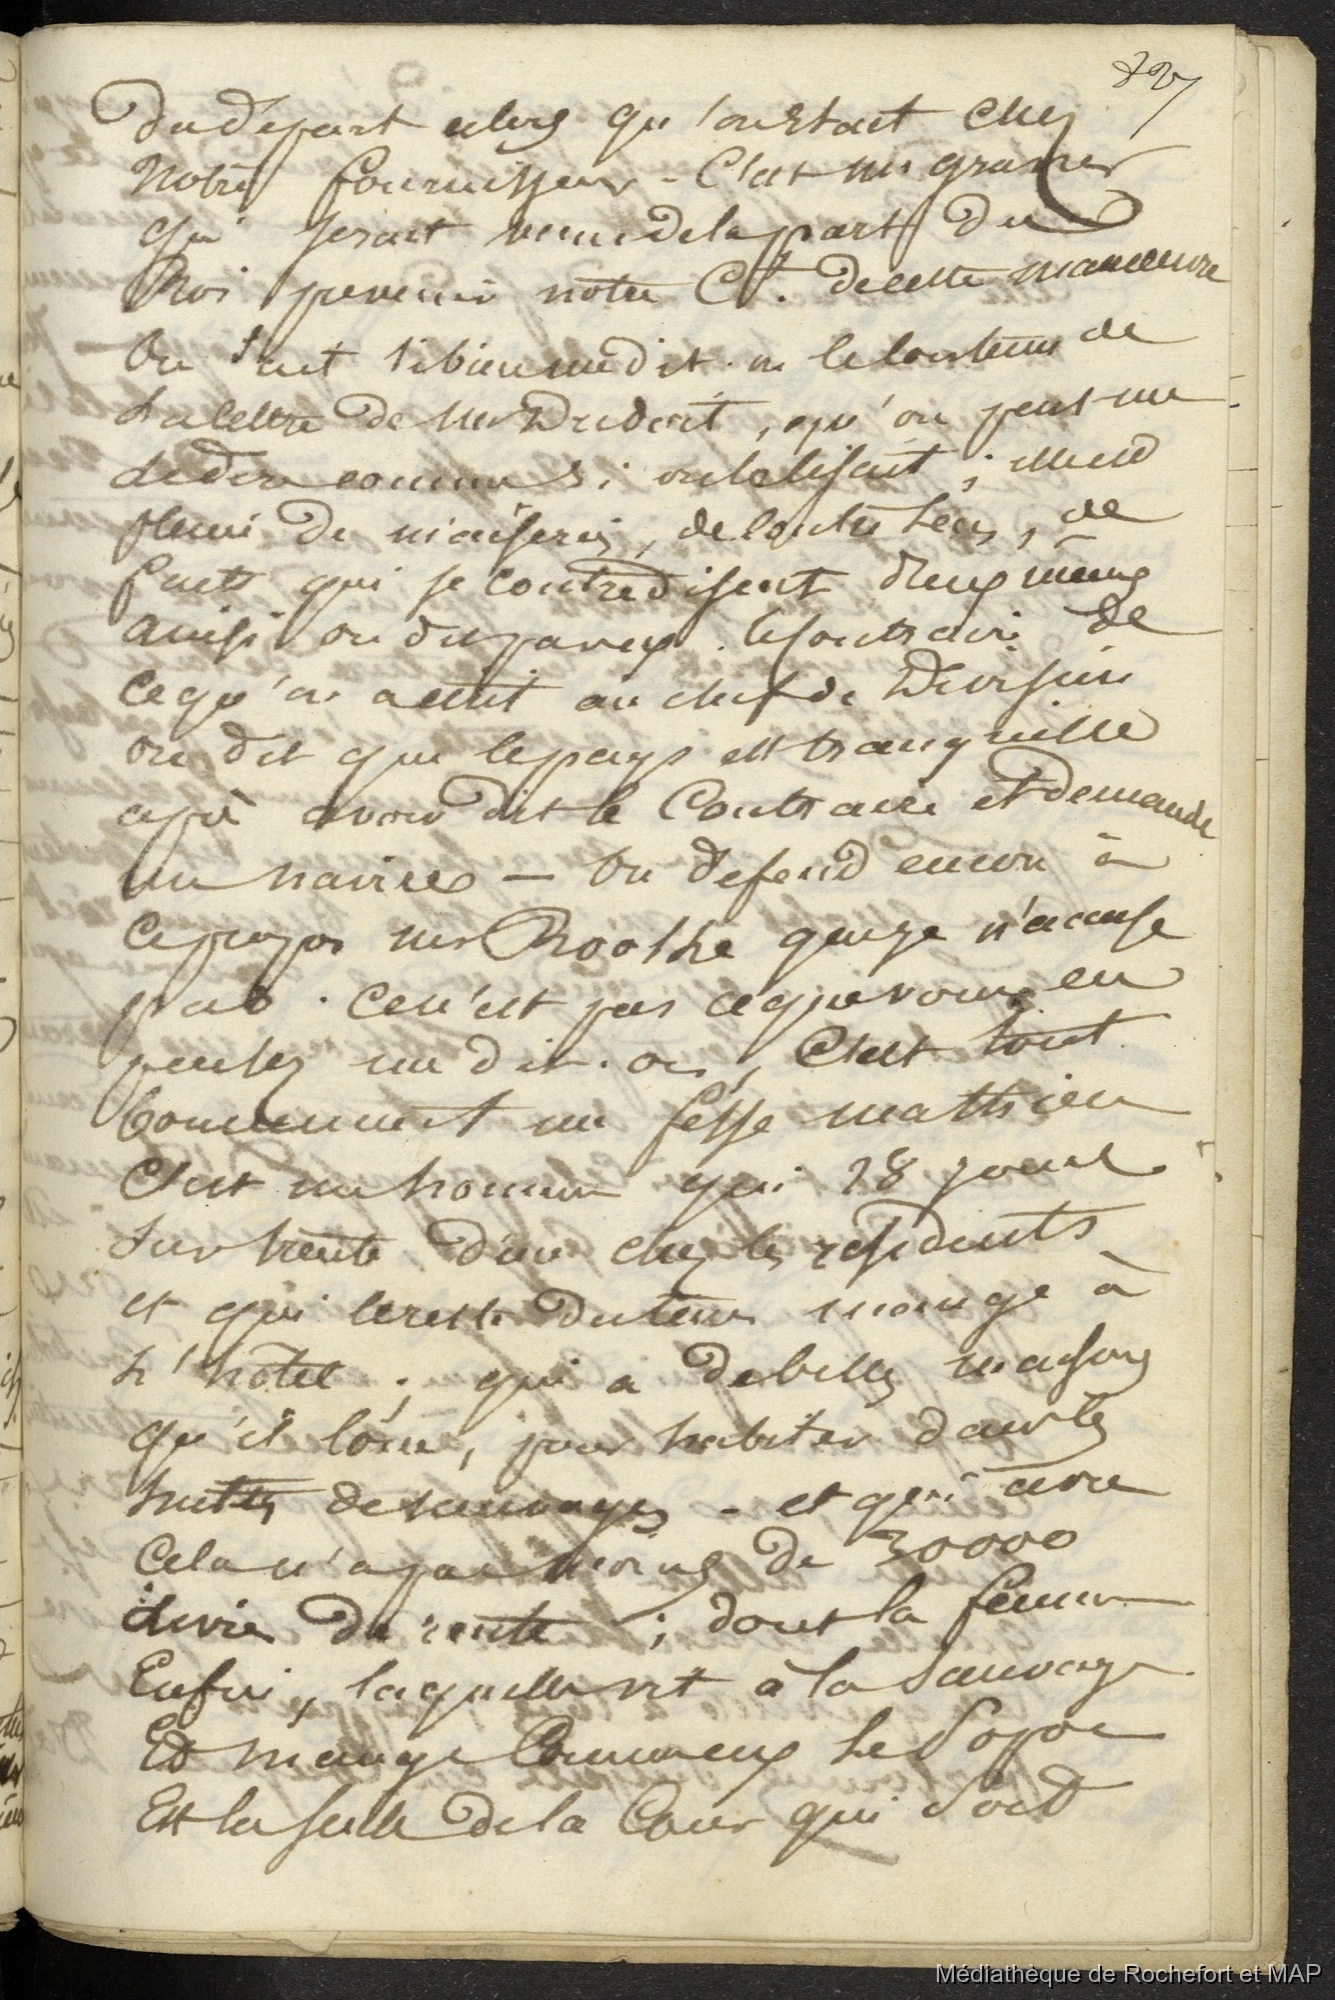 327
du départ alors qu'on Etait chez
Notre fournisseur - C'est mr
qui serait venu de la part du
Roi prevenir notre Ct. de cette manoeuvre
On sait si bien me dit. on le contenu de
La lettre de mr Dudoit, qu'on peut me
Le dire comme Si on la lisait ; elle est
pleine de niaiseries, de contre sens, de
faits qui se contredisent d'eux memes
ainsi on dit par ex. le contraire de
ce qu'on a ecrit au chef de Division
on dit que le pays est tranquille
après avoir dit le Contraire et demandé
un navire — On defend encore à
ce propos mr Boothe que je n'accuse
pas. Ce n'est pas ce que vous en
pensez me dit. on, C'est tout
bonnement un fesse mathieu
C'est un homme qui 28 jours
Sur trente dine chez les résidents
et qui le reste du tems mange à
L'hôtel ; qui a de belles maisons
qu'il loue, pour habiter dans les
huttes de sauvages - et qui avec
Cela n'a pas moins de 30000
Livres de rente ; dont la femme
Enfin, laquelle vit à la Sauvage
Et mange Comme eux Le Popoe
Est la seule de la Cour qui Soit
Médiathèque de Rochefort et MAP